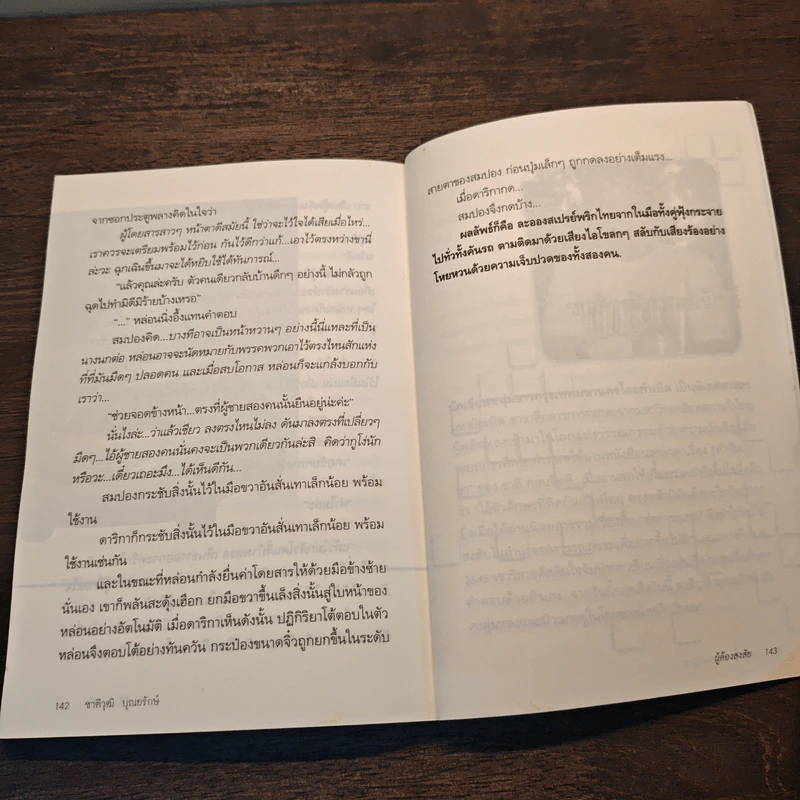 จากซอกประตูพลางคิดในใจว่า
ผู้โดยสารสาวๆ หน้าตาดีสมัยนี้ ใช่ว่าจะไว้ใจได้เสียเมื่อไหร่...
เราควรจะเตรียมพร้อมไว้ก่อน กันไว้ดีกว่าแก้...เอาไว้ตรงหว่างขานี่
ล่ะวะ ฉุกเฉินขึ้นมาจะได้หยิบใช้ได้ทันการณ์...
“แล้วคุณล่ะครับ ตัวคนเดียวกลับบ้านดึกๆ อย่างนี้ ไม่กลัวถูก
ฉุดไปทำมิดีมิร้ายบ้างเหรอ”
“...” หล่อนนิ่งอึ้งแทนคำตอบ
สมปองคิด...บางทีอาจเป็นหน้าหวานๆ อย่างนี้นี่แหละที่เป็น
นางนกต่อ หล่อนอาจจะนัดหมายกับพรรคพวกเอาไว้ตรงไหนสักแห่ง
ที่ที่มันมืดๆ ปลอดคน และเมื่อสบโอกาส หล่อนก็จะแกล้งบอกกับ
เราว่า...
“ช่วยจอดข้างหน้า...ตรงที่ผู้ชายสองคนนั้นยืนอยู่น่ะค่ะ”
นั่นไงล่ะ...ว่าแล้วเชียว ลงตรงไหนไม่ลง ดันมาลงตรงที่เปลี่ยวๆ
มืดๆ...ไอ้ผู้ชายสองคนนั่นคงจะเป็นพวกเดียวกันล่ะสิ คิดว่ากูโง่นัก
หรือวะ...เดี๋ยวเถอะมึง...ได้เห็นดีกัน...
สมปองกระชับสิ่งนั้นไว้ในมือขวาอันสั่นเทาเล็กน้อย พร้อม
ใช้งาน
ดาริกาก็กระชับสิ่งนั้นไว้ในมือขวาอันสั่นเทาเล็กน้อย พร้อม
ใช้งานเช่นกัน
และในขณะที่หล่อนกำลังยื่นค่าโดยสารให้ด้วยมือข้างซ้าย
นั่นเอง เขาก็พลันสะดุ้งเฮือก ยกมือขวาขึ้นเล็งสิ่งนั้นสู่ใบหน้าของ
หล่อนอย่างอัตโนมัติ เมื่อดาริกาเห็นดังนั้น ปฏิกิริยาโต้ตอบในตัว
หล่อนจึงตอบโต้อย่างทันควัน กระป๋องขนาดจิ๋วถูกยกขึ้นในระดับ
142 ชาติวุฒิ บุณยรักษ์
สายตาของสมปอง ก่อนปุ่มเล็กๆ ถูกกดลงอย่างเต็มแรง...
เมื่อดาริกากด...
สมปองจึงกดบ้าง...
ผลลัพธ์ก็คือ ละอองสเปรย์พริกไทยจากในมือทั้งคู่ฟุ้งกระจาย
ไปทั่วทั้งคันรถ ตามติดมาด้วยเสียงไอโขลกๆ สลับกับเสียงร้องอย่าง
โหยหวนด้วยความเจ็บปวดของทั้งสองคน.
ผู้ต้องสงสัย 143